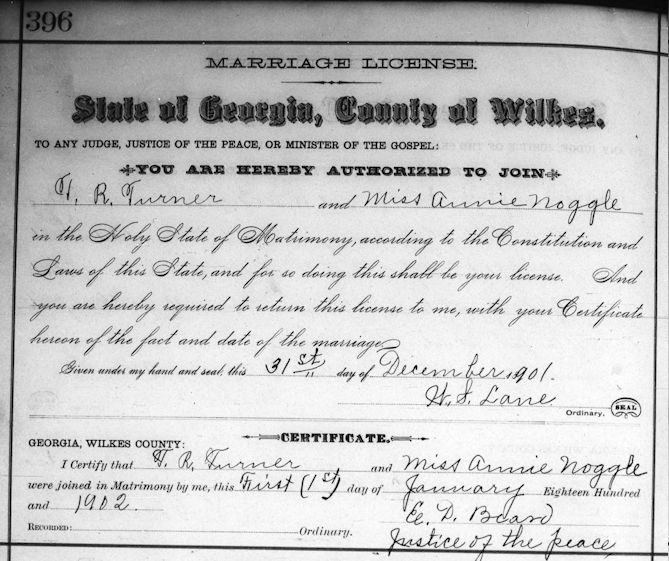 396
MARRIAGE LICENSE.
State of Georgia, County of Wilkes.
TO ANY JUDGE, JUSTICE OF THE PEACE, OR MINISTER OF THE GOSPEL:
YOU ARE HEREBY AUTHORIZED TO JOIN
R. Turner and Miss Annie Noggle
in the Holy State of Matrimony, according to the Constitution and
Laws of this State, and for so doing this shall be your license. And
you are hereby required to return this license to me, with your Certificate
hereon of the fact and date of the marriage.
Given under my hand and seal, this 31st day of December 1901.
S. Lane
Ordinary. SEAL
CERTIFICATE.
GEORGIA, WILKES COUNTY:
I Certify that R. Turner and Miss Annie Noggle
were joined in Matrimony by me, this First (1st) day of January Eighteen Hundred
and 1902. D. Beard
RECORDED: Ordinary. Justice of the peace,